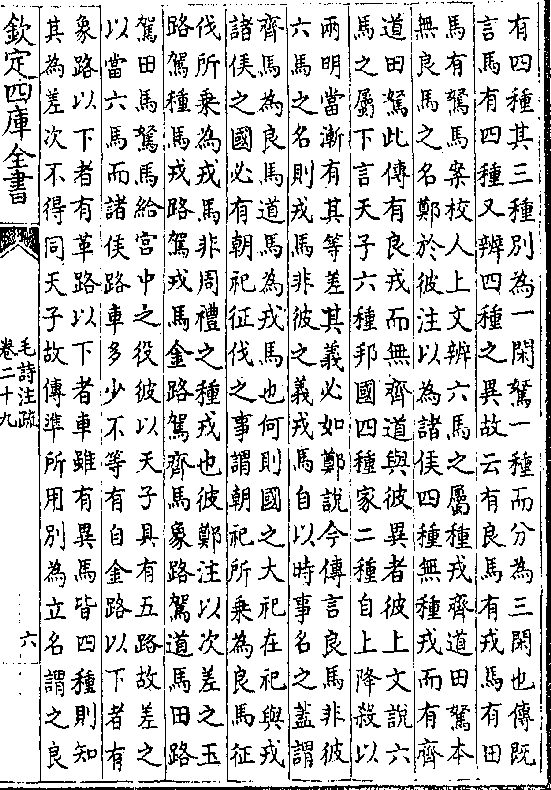 有四種其三種別為一閑駑一種而分為三閑也傳旣
言馬有四種又辨四種之異故云有良馬有戎馬有田
馬有駑馬案校人上文辨六馬之屬種戎齊道田駑本
無良馬之名鄭於彼注以為諸侯四種無種戎而有齊
道田駑此傳有良戎而無齊道與彼異者彼上文說六
馬之屬下言天子六種邦國四種家二種自上降殺以
兩明當漸有其等差其義必如鄭說今傳言良馬非彼
六馬之名則戎馬非彼之義戎馬自以時事名之蓋謂
齊馬為良馬道馬為戎馬也何則國之大祀在祀與戎
諸侯之國必有朝祀征伐之事謂朝祀所乗為良馬征
伐所乗為戎馬非周禮之種戎也彼鄭注以次差之玉
路駕種馬戎路駕戎馬金路駕齊馬象路駕道馬田路
駕田馬駑馬給宫中之役彼以天子具有五路故差之
以當六馬而諸侯路車多少不等有自金路以下者有
象路以下者有革路以下者車雖有異馬皆四種則知
其為差次不得同天子故傳準所用別為立名謂之良
欽定四庫全書
毛詩注疏
卷二十九
六